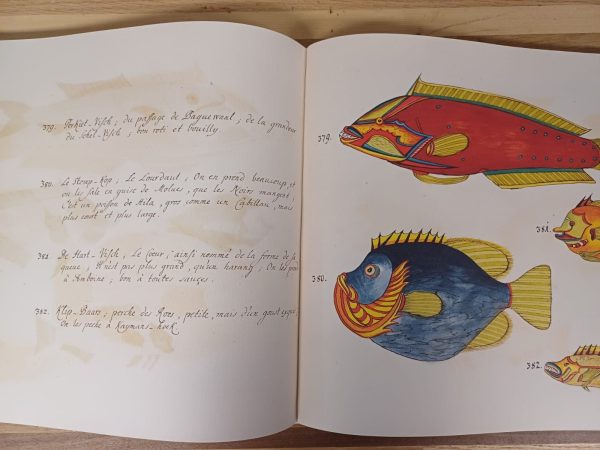 379. Perkiet-Visch; du passage de Baguewaal; de la grandeur
du Schel-Visch; bon roti et bouilly.
380. Le Stomp-Kop, Le Lourdaut, On en prend beaucoup, et
on les sale en guise de Molues, que les Noirs mangent,
C'est un poisson de Hila, gros comme un Cabillau, mais
plus court et plus large.
381. De Hart-Visch, Le Coeur; ainsi nommé de la forme de sa
queue, Il n'est pas plus grand, qu'un harang, On les
à Amboine; bon à toutes sauces.
382. Klip-Baars; perche des Rocs, petite, mais d'un goust
On les peche à Kaymans-hoek
379.
381.
380.
382.